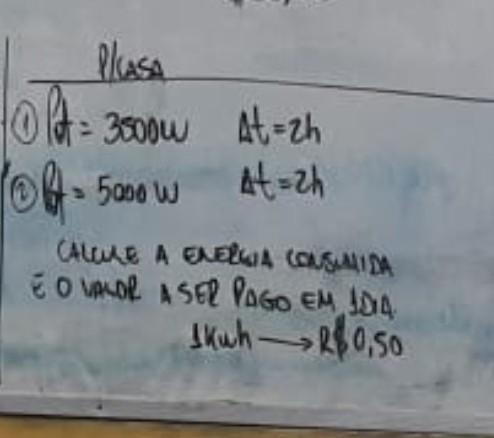 P/CASA
① Pot = 3500W Δt = 2h
② Pot = 5000W Δt = 2h
CALCULE A ENERGIA CONSUMIDA
E O VALOR A SER PAGO EM 1DIA
1Kwh → R$0,50